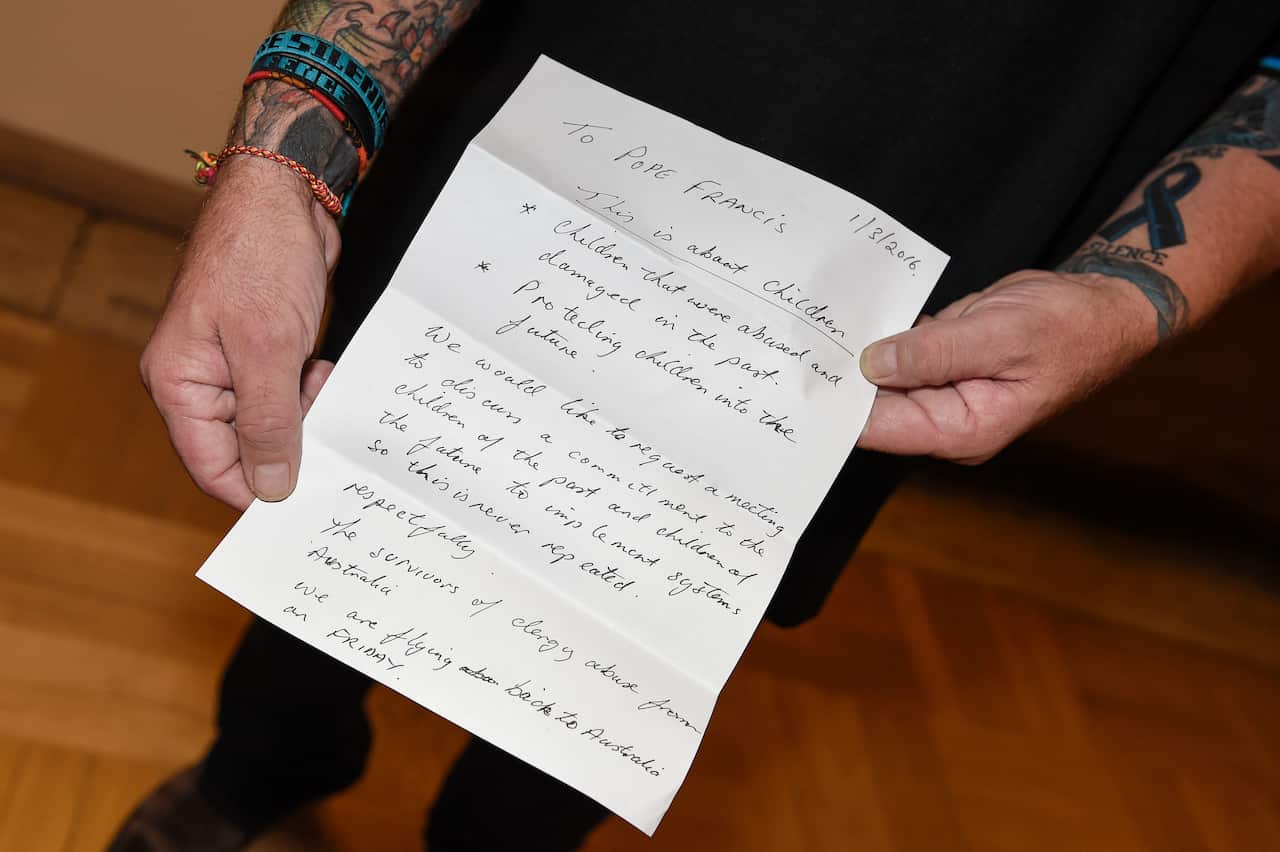 SE SILENCE
FENCE
SILENCE
To POPE FRANCIS
1/3/2016.
This is about children
* Children that were abused and
damaged in the past.
* Protecting children into the
future.
We would like to request a meeting
to discuss a committment to the
children of the past and children of
the future to implement systems
so this is never repeated.
respectfully.
The survivors of clergy abuse from
Australia
We are flying back to Australia
on FRIDAY.